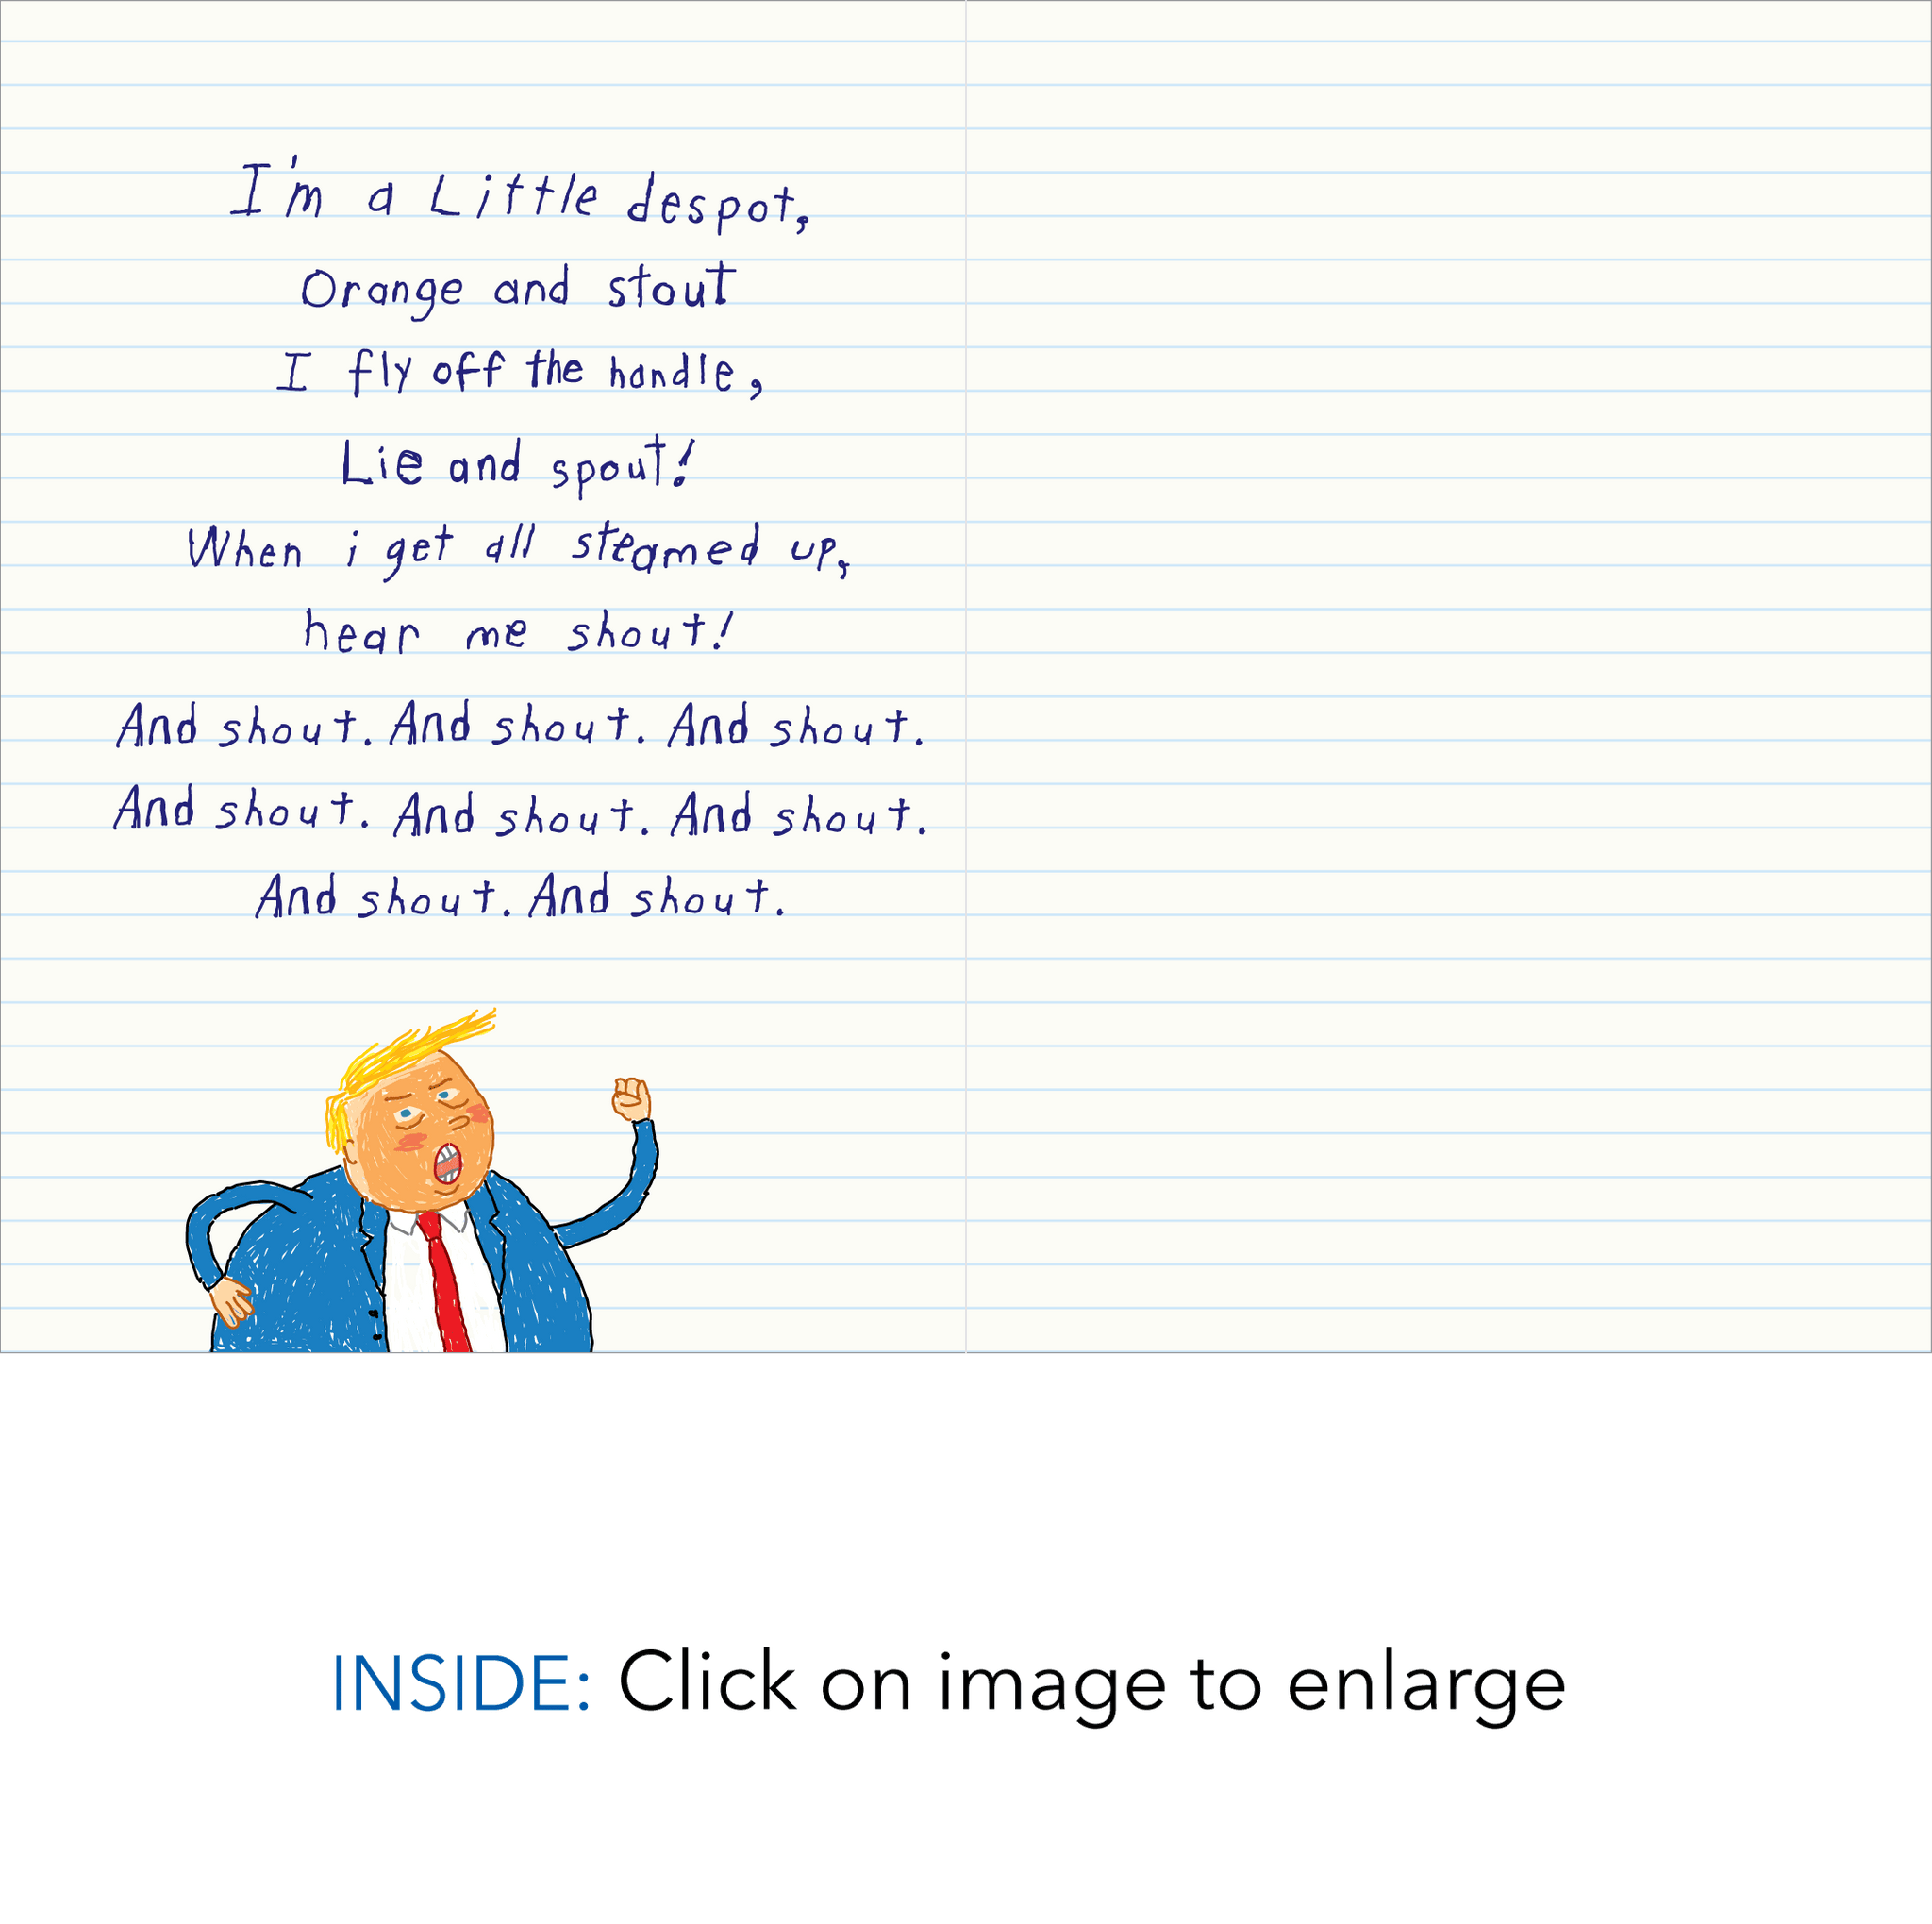 I'm a Little despot,
Orange and stout
I fly off the handle,
Lie and spout!
When i get all steamed up,
hear me shout!
And shout. And shout. And shout.
And shout. And shout. And shout.
And shout. And shout.
INSIDE: Click on image to enlarge